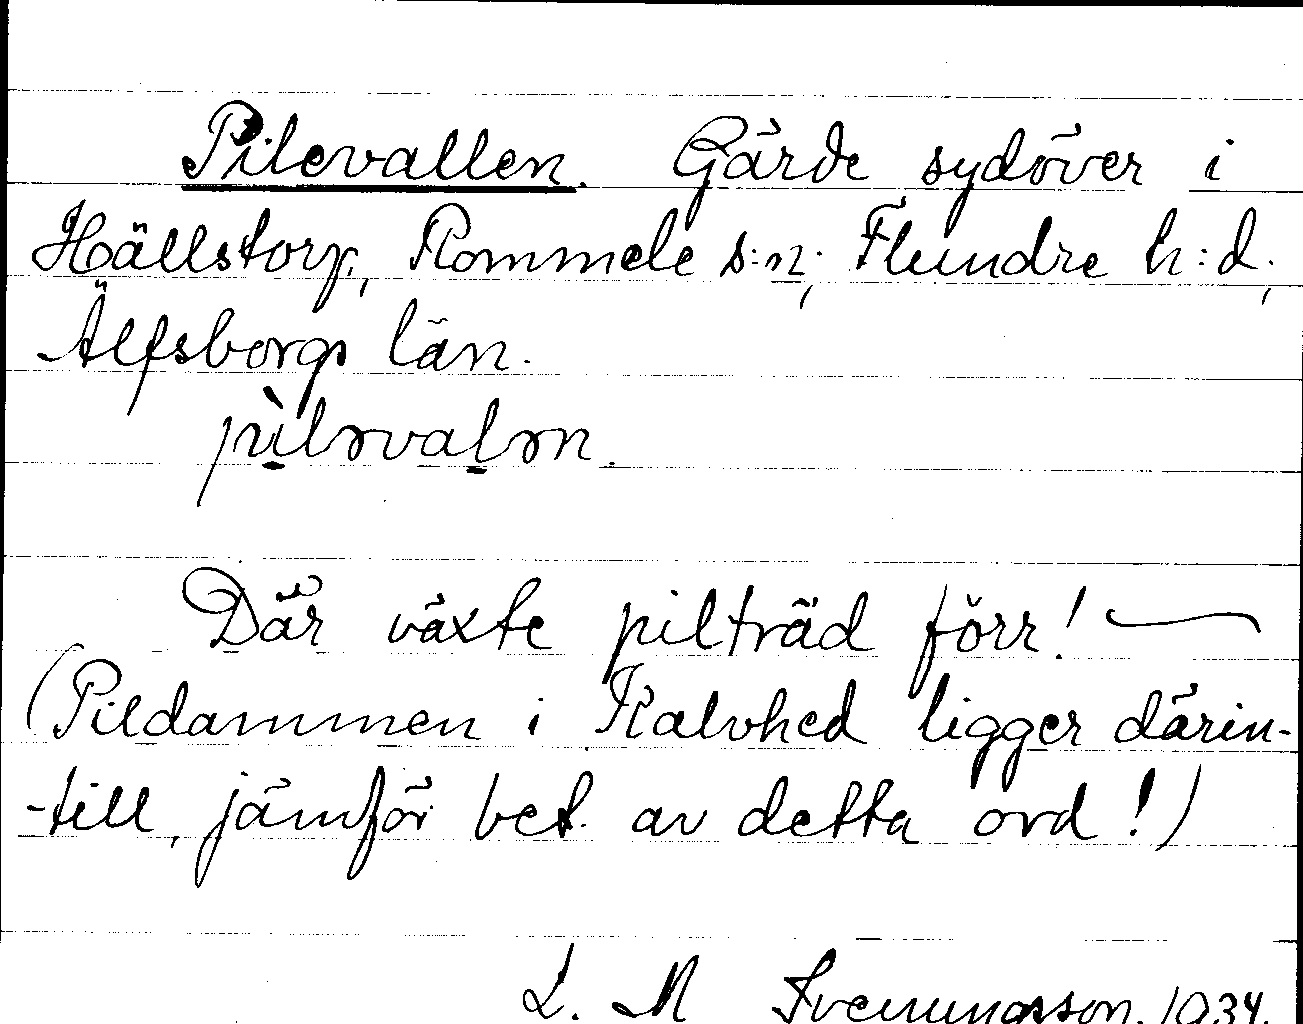 Pilevallen. Gärde sydöver i
Hällstorp, Rommele s:n, Flundre h:d,
Älfsborgs län.
pìləvalən.
Där växte pilträd förr! —
(Pildammen i Kalvhed ligger därin-
-till, jämför bet. av detta ord!)
L. M Svenungsson. 1934.